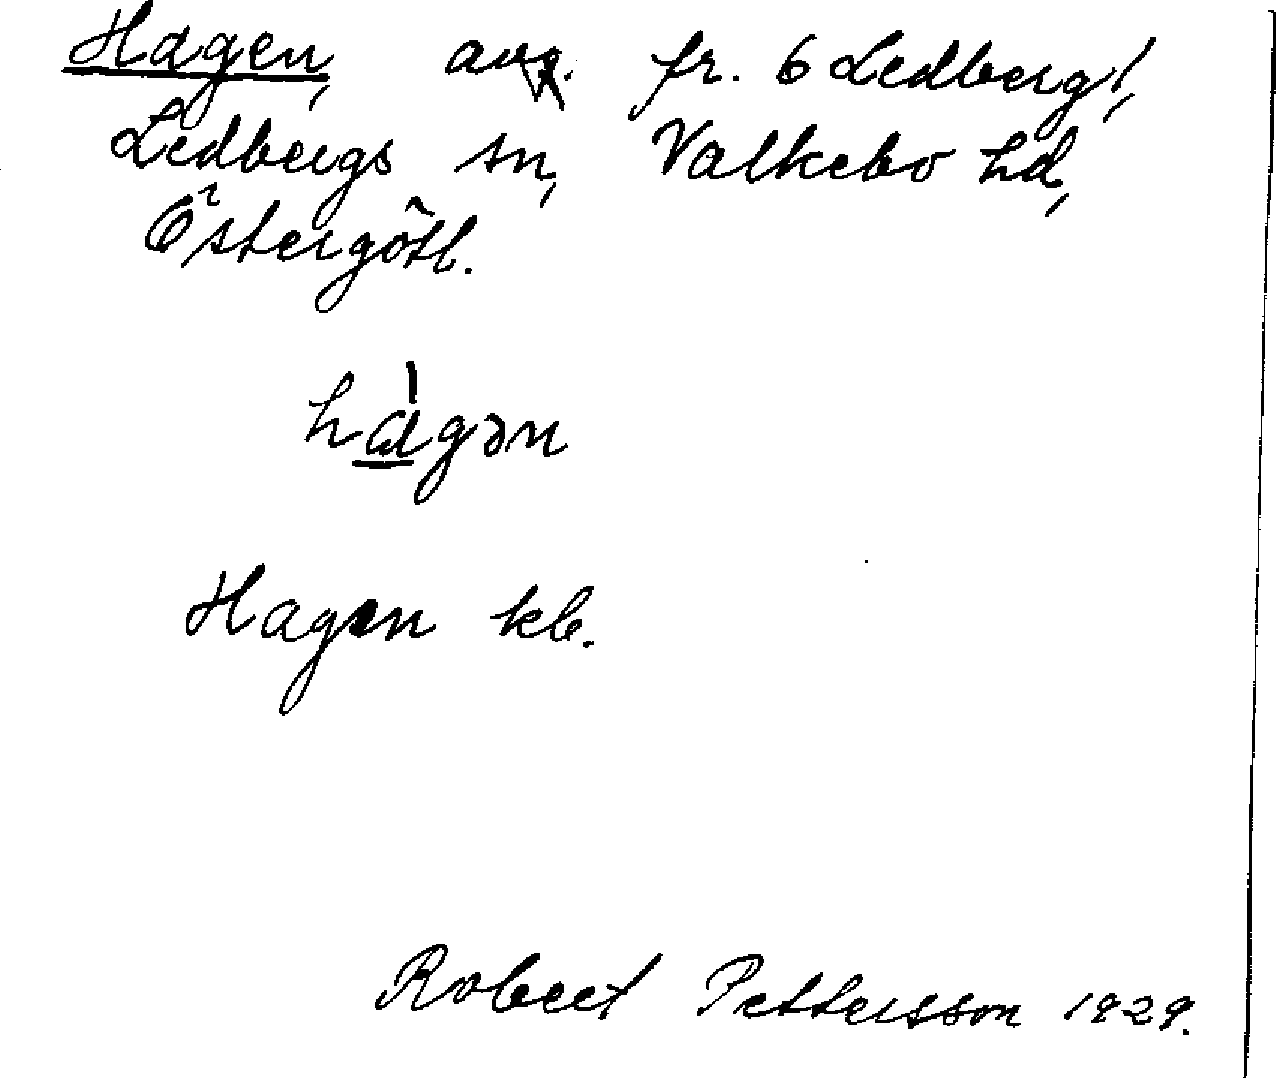 Hagen, avg. fr. 6 Ledberg!,
Ledbergs sn, Valkebo hd,
Östergötl.
hàgən
Hagen kb.
Robert Pettersson 1929.